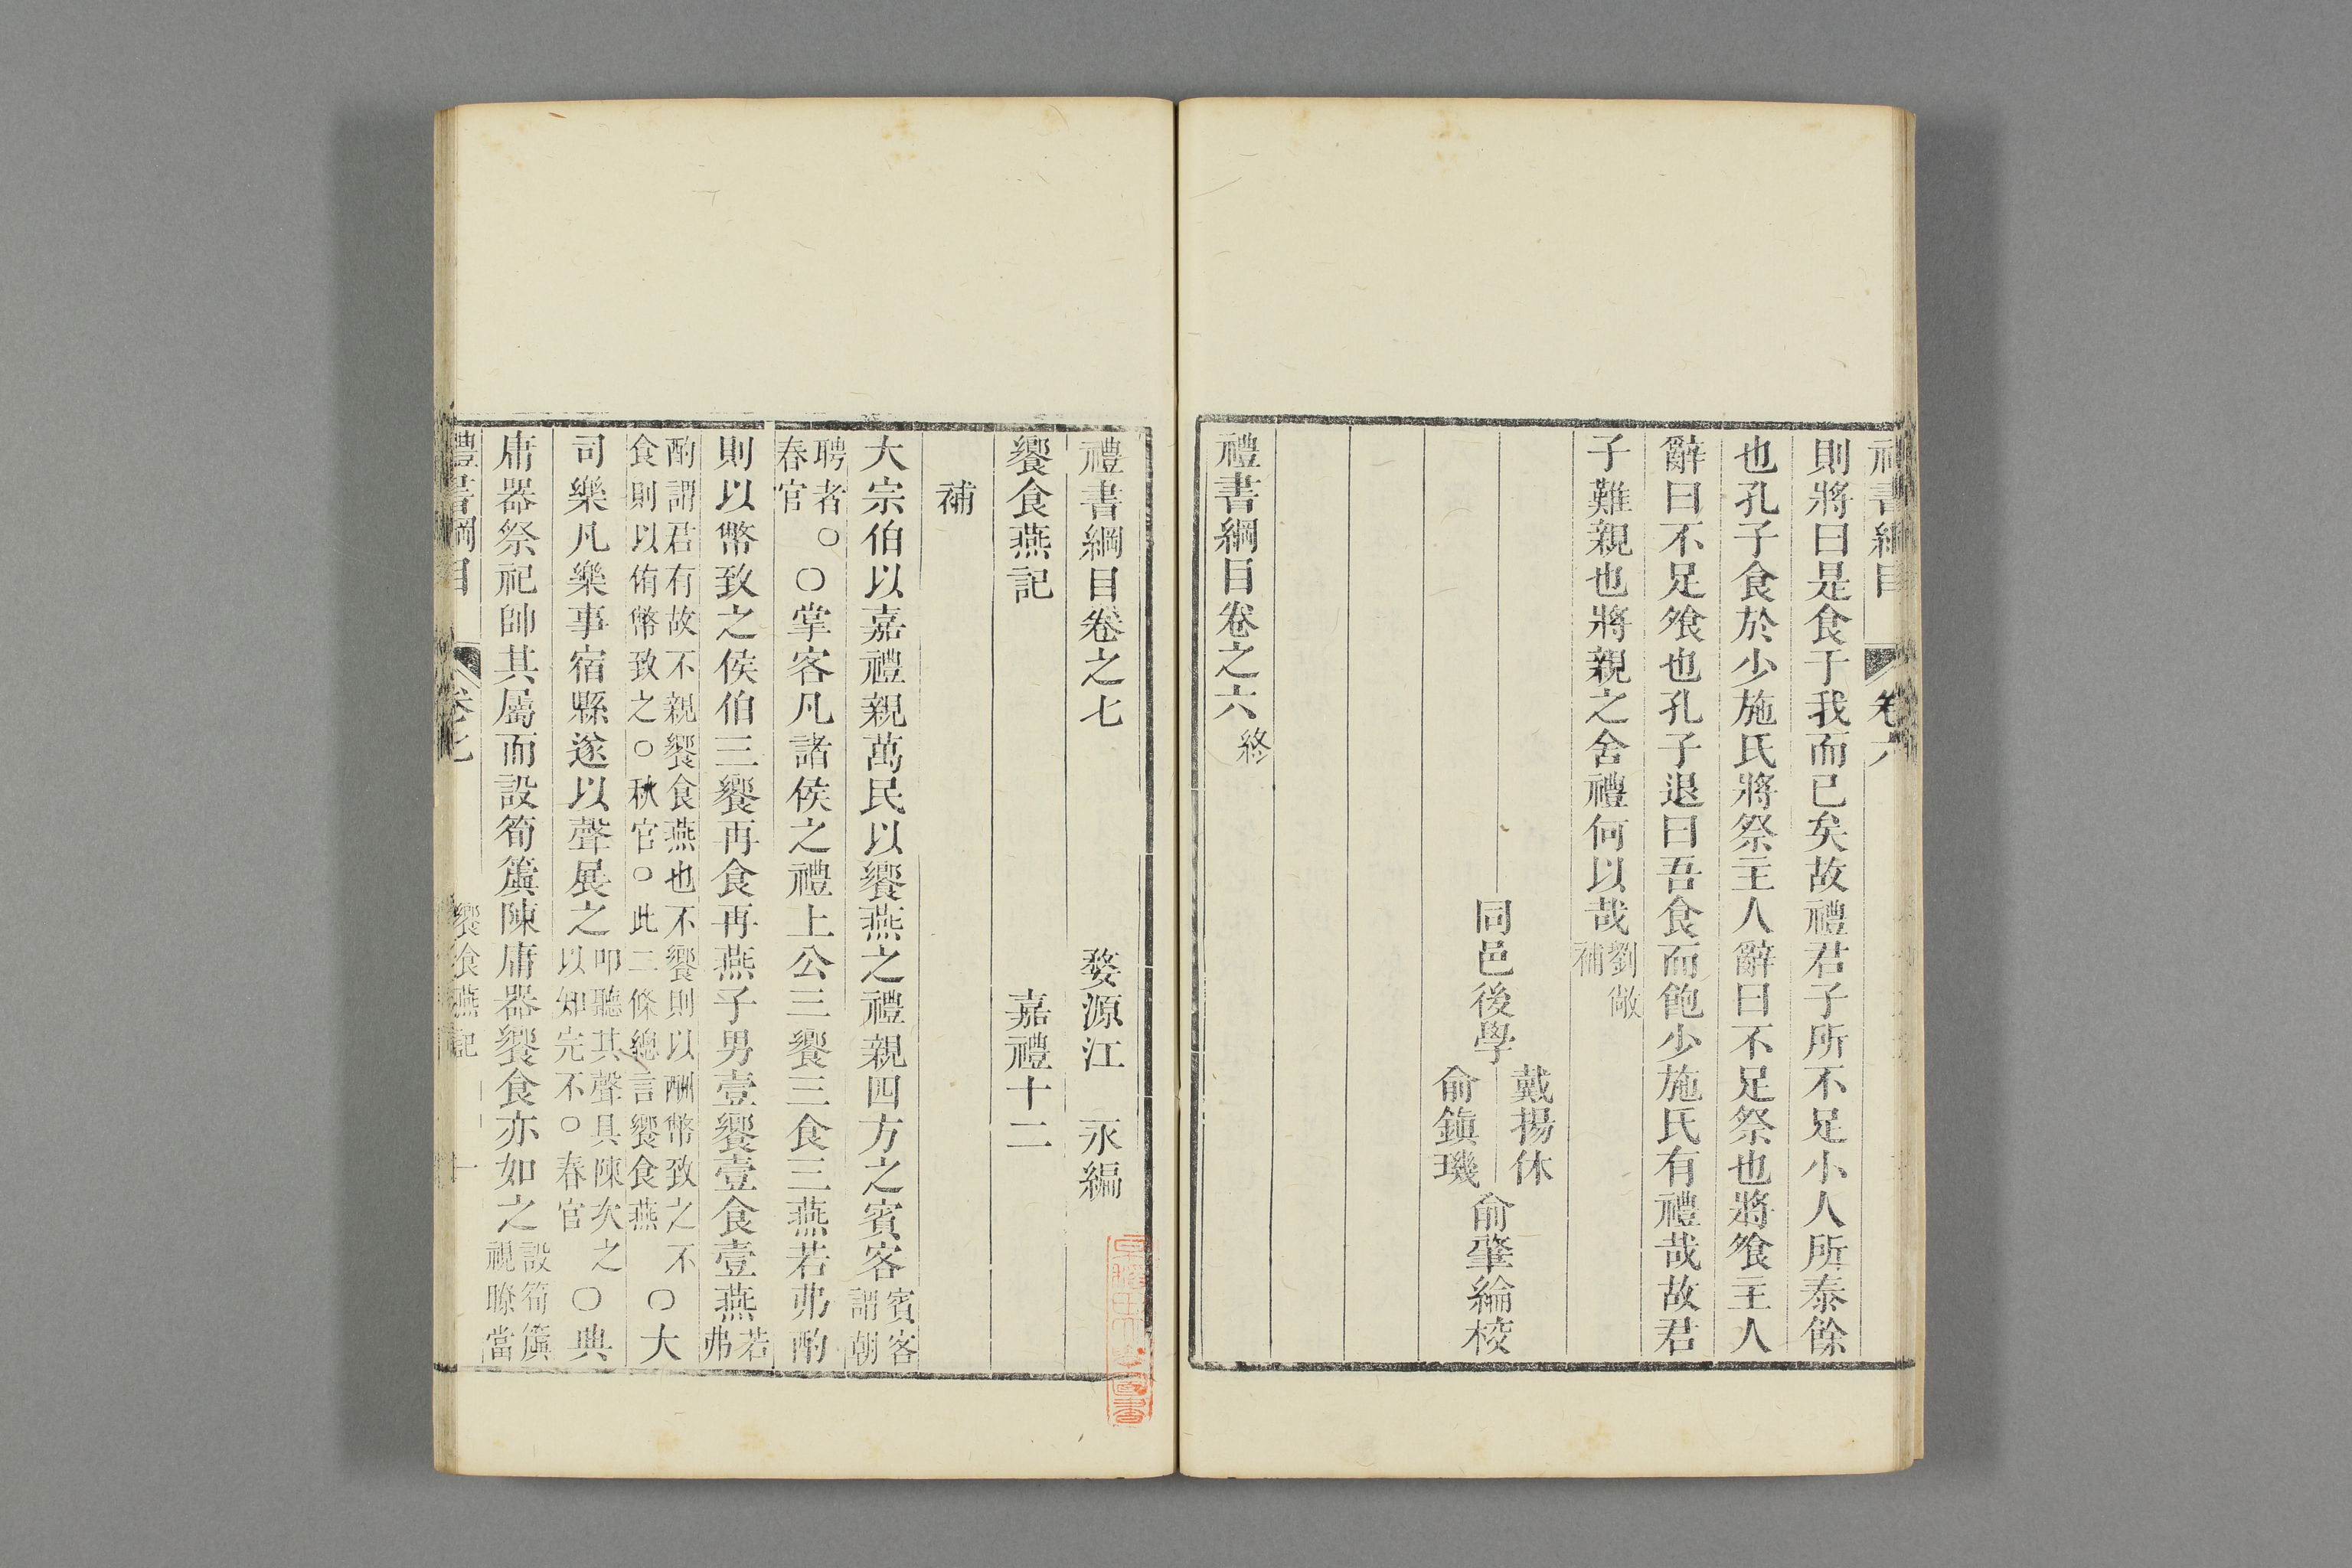 禮書綱目 卷六
則將曰是食于我而已矣故禮君子所不足小人所泰餘
也孔子食於少施氏將祭主人辭曰不足祭也將飧主人
辭曰不足飧也孔子退曰吾食而飽少施氏有禮哉故君
子難親也將親之舍禮何以哉劉敞補
同邑後學戴揚休俞鎭璣俞肇綸校
禮書綱目卷之六終
禮書綱目卷之七 婺源江 永編
饗食燕記 嘉禮十二
補
大宗伯以嘉禮親萬民以饗燕之禮親四方之賓客賓客謂朝
聘者○春官○掌客凡諸侯之禮上公三饗三食三燕若弗酌
則以幣致之侯伯三饗再食再燕子男壹饗壹食壹燕若弗
酌謂君有故不親饗食燕也不饗則以酬幣致之不食則以侑幣致之○秋官○此二條總言饗食燕○大
司樂凡樂事宿縣遂以聲展之叩聽其聲具陳次之以知完不○春官○典
庸器祭祀帥其屬而設筍簴陳庸器饗食亦如之設筍簴視瞭當
禮書綱目 卷七 饗食燕記 一
早稻田大學圖書